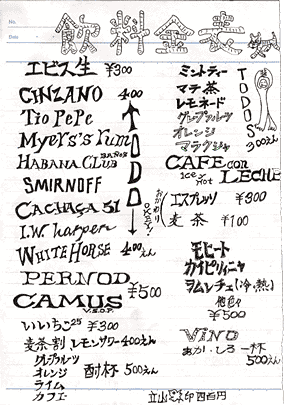 飲料金表
エビス生 ¥300
CINZANO 400
Tio PePe
Myers's rum
HABANA CLUB 3años
SMIRNOFF
CACHAÇA 51
I.W harper
WHITE HORSE 400えん
TODO
おかわり
OKEY!
PERNOD
CAMUS
V.S.O.P.
¥500
いいちこ25 ¥300
麦茶割 レモンサワー400えん
グレプフルーツ
オレンジ 酎杯 500えん
ライム
カフェ
ミントティー
マテ茶
レモネード
グレプフルーツ
オレンジ
マラクジャ
TODOS
300えん
CAFE con LECHE
icey Hot
エスプレッソ ¥300
麦茶 ¥100
モヒート
カイピリィニャ
ヲムレチェ(冷,熱)
他色々
¥500
VINO
あか・しろ 一杯
500えん